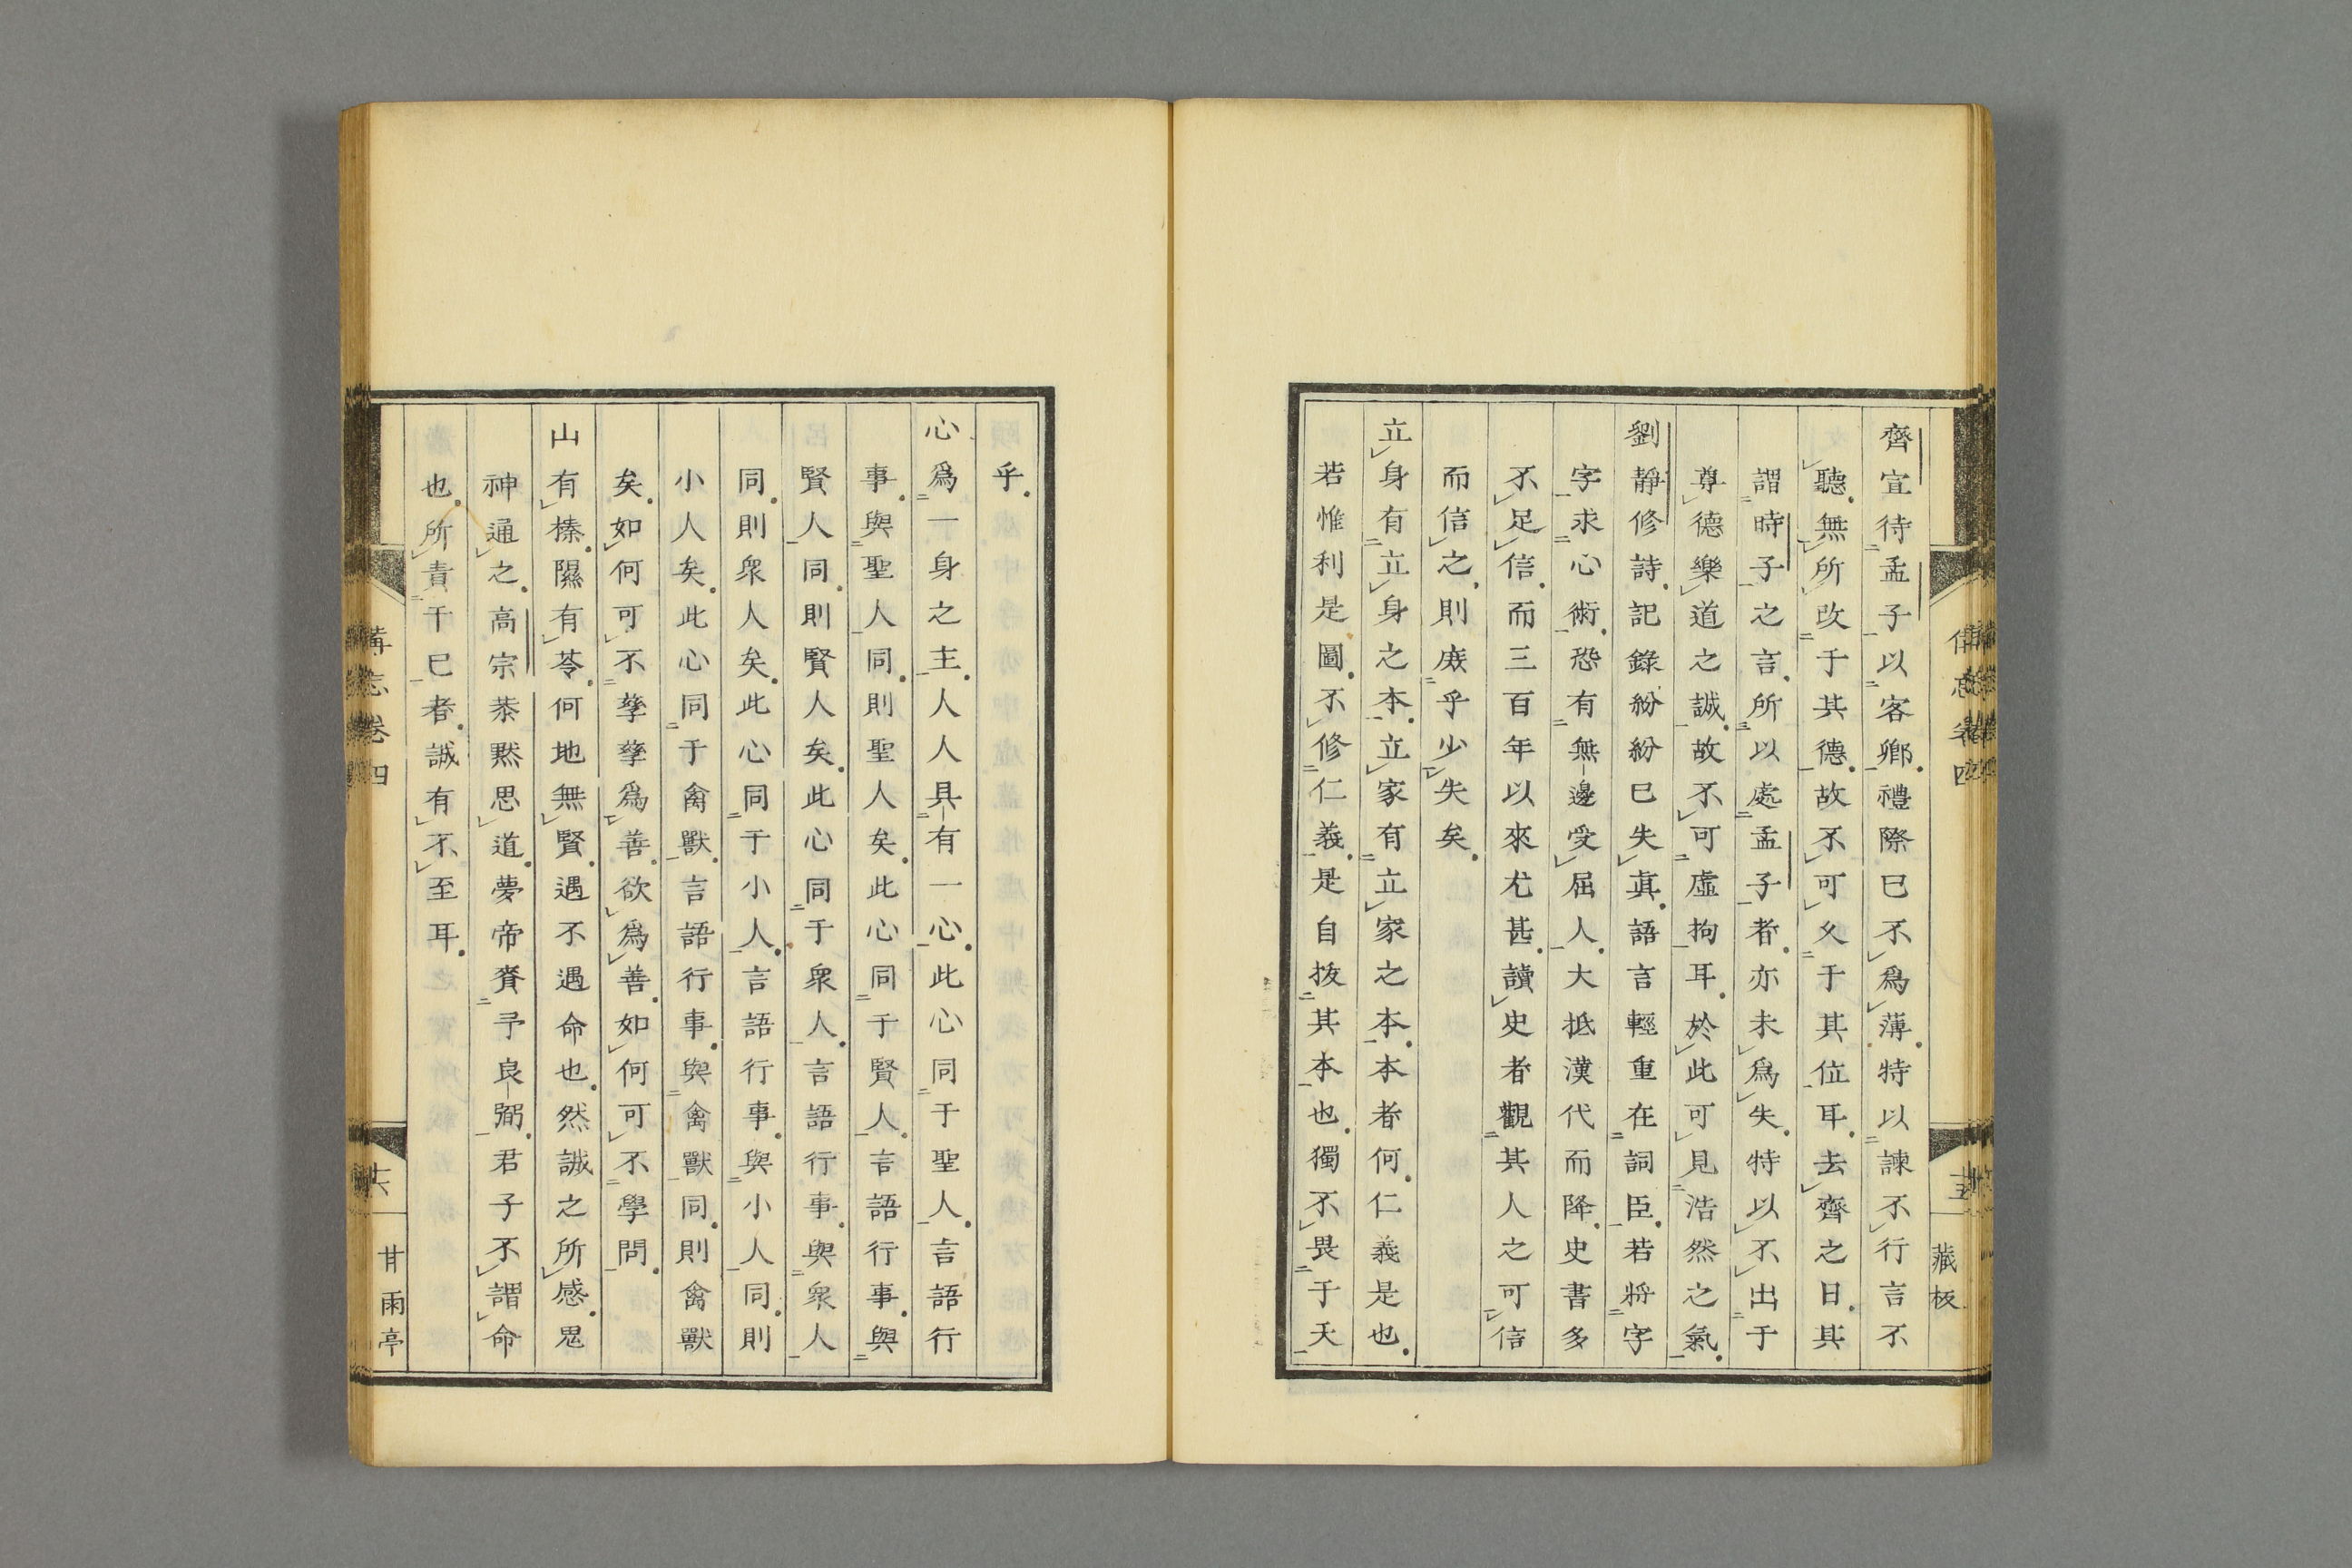 齊宣待孟子以客鄉禮際已不爲薄特以諫不行言不
聽無所改于其德故不可久于其位耳去齊之日其
謂時子之言所以處孟子者亦未爲失特以不出于
尊德樂道之誠故不可虛拘耳於此可見浩然之氣
劉靜修詩記錄紛紛已失眞語言輕重在詞臣若將字
字求心術恐有無邊受屈人大抵漢代而降史書多
不足信而三百年以來尤甚讀史者觀其人之可信
而信之則庶乎少失矣
立身有立身之本立家有立家之本本者何仁義是也
若惟利是圖不修仁義是自拔其本也獨不畏于天
乎
心爲一身之主人人具有一心此心同于聖人言語行
事與聖人同則聖人矣此心同于賢人言語行事與
賢人同則賢人矣此心同于衆人言語行事與衆人
同則衆人矣此心同于小人言語行事與小人同則
小人矣此心同于禽獸言語行事與禽獸同則禽獸
矣如何可不孳孳爲善欲爲善如何可不學問
山有榛隰有苓何地無賢遇不遇命也然誠之所感鬼
神通之高宗恭默思道夢帝賚予良弼君子不謂命
也所責于已者誠有不至耳
備忘卷四
十五
藏板
備忘卷四
十六
甘雨亭